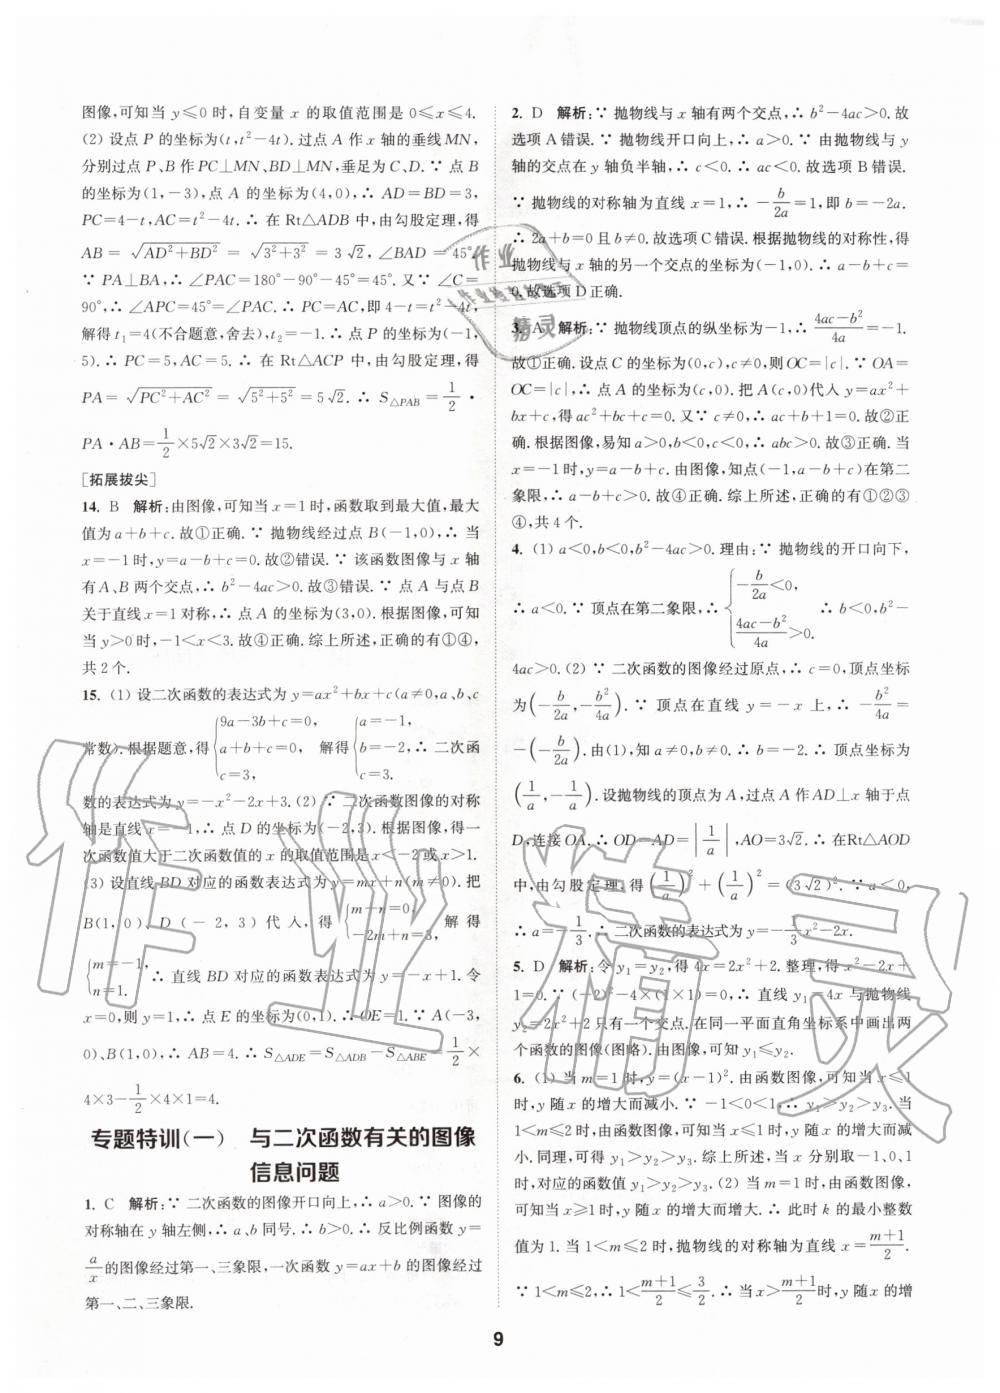 图像,可知当 y≤0 时,自变量 x 的取值范围是 0≤x≤4.
(2) 设点 P 的坐标为(t,t²－4t).过点 A 作 x 轴的垂线 MN,
分别过点 P、B 作 PC⊥MN、BD⊥MN,垂足为 C、D.∵ 点 B
的坐标为(1,－3),点 A 的坐标为(4,0),∴ AD=BD=3,
PC=4－t,AC=t²－4t.∴ 在 Rt△ADB 中,由勾股定理,得
AB=√(AD²+BD²)=√(3²+3²)=3√2,∠BAD=45°.
∵ PA⊥BA,∴ ∠PAC=180°－90°－45°=45°.又∵ ∠C=
90°,∴ ∠APC=45°=∠PAC.∴ PC=AC,即 4－t=t²－4t,
解得 t₁=4(不合题意,舍去),t₂=－1.∴ 点 P 的坐标为(－1,
5).∴ PC=5,AC=5.∴ 在 Rt△ACP 中,由勾股定理,得
PA=√(PC²+AC²)=√(5²+5²)=5√2.∴ S△PAB=1/2·
PA·AB=1/2×5√2×3√2=15.
[拓展拔尖]
14. B 解析:由图像,可知当 x=1 时,函数取到最大值,最大
值为 a+b+c.故①正确.∵ 抛物线经过点 B(－1,0),∴ 当
x=－1 时,y=a－b+c=0.故②错误.∵ 该函数图像与 x 轴
有 A、B 两个交点,∴ b²－4ac>0.故③错误.∵ 点 A 与点 B
关于直线 x=1 对称,∴ 点 A 的坐标为(3,0).根据图像,可知
当 y>0 时,－1<x<3.故④正确.综上所述,正确的有①④,
共 2 个.
15. (1) 设二次函数的表达式为 y=ax²+bx+c(a≠0,a、b、c
常数).根据题意,得{9a－3b+c=0, a+b+c=0, c=3, 解得{a=－1, b=－2, c=3.∴ 二次函
数的表达式为 y=－x²－2x+3.(2) ∵ 二次函数图像的对称
轴是直线 x=－1,∴ 点 D 的坐标为(－2,3).根据图像,得一
次函数值大于二次函数值的 x 的取值范围是 x<－2 或 x>1.
(3) 设直线 BD 对应的函数表达式为 y=mx+n(m≠0).把
B(1,0)、D(－2,3)代入,得{m+n=0, －2m+n=3, 解得
{m=－1, n=1. ∴ 直线 BD 对应的函数表达式为 y=－x+1.令
x=0,则 y=1,∴ 点 E 的坐标为(0,1).∴ OE=1.∵ A(－3,
0)、B(1,0),∴ AB=4.∴ S△ADE=S△ADB－S△ABE=1/2×
4×3－1/2×4×1=4.
专题特训(一) 与二次函数有关的图像
信息问题
1. C 解析:∵ 二次函数的图像开口向上,∴ a>0.∵ 图像的
对称轴在 y 轴左侧,∴ a、b 同号.∴ b>0.∴ 反比例函数 y=
a/x的图像经过第一、三象限,一次函数 y=ax+b 的图像经过
第一、二、三象限.
2. D 解析:∵ 抛物线与 x 轴有两个交点,∴ b²－4ac>0.故
选项 A 错误.∵ 抛物线开口向上,∴ a>0.∵ 由抛物线与 y
轴的交点在 y 轴负半轴,∴ c<0.∴ ac<0.故选项 B 错误.
∵ 抛物线的对称轴为直线 x=1,∴ －b/2a=1,即 b=－2a.
∴ 2a+b=0 且 b≠0.故选项 C 错误.根据抛物线的对称性,得
抛物线与 x 轴的另一个交点的坐标为(－1,0).∴ a－b+c=
0.故选项 D 正确.
3. A 解析:∵ 抛物线顶点的纵坐标为－1,∴ (4ac－b²)/4a=－1.
故①正确.设点 C 的坐标为(0,c),c≠0,则 OC=|c|.∵ OA=
OC=|c|,∴ 点 A 的坐标为(c,0).把 A(c,0)代入 y=ax²+
bx+c,得 ac²+bc+c=0.又∵ c≠0,∴ ac+b+1=0.故②正
确.根据图像,易知 a>0,b<0,c<0,∴ abc>0.故③正确.当
x=－1 时,y=a－b+c.由图像,知点(－1,a－b+c)在第二
象限,∴ a－b+c>0.故④正确.综上所述,正确的有①②③
④,共 4 个.
4. (1) a<0,b<0,b²－4ac>0.理由:∵ 抛物线的开口向下,
∴ a<0.∵ 顶点在第二象限,∴ {－b/2a<0, (4ac－b²)/4a>0. ∴ b<0,b²－
4ac>0.(2) ∵ 二次函数的图像经过原点,∴ c=0,顶点坐标
为(－b/2a,－b²/4a).∵ 顶点在直线 y=－x 上,∴ －b²/4a=
－(－b/2a).由(1),知 a≠0,b≠0.∴ b=－2.∴ 顶点坐标为
(1/a,－1/a).设抛物线的顶点为 A,过点 A 作 AD⊥x 轴于点
D,连接 OA.∴ OD=AD=|1/a|,AO=3√2.∴ 在Rt△AOD
中,由勾股定理,得(1/a)²+(1/a)²=(3√2)².∵ a<0,
∴ a=－1/3.∴ 二次函数的表达式为 y=－1/3x²－2x.
5. D 解析:令 y₁=y₂,得 4x=2x²+2.整理,得 x²－2x+
1=0.∵ (－2)²－4×(1×1)=0,∴ 直线 y₁=4x 与抛物线
y₂=2x²+2 只有一个交点.在同一平面直角坐标系中画出两
个函数的图像(图略).由图像,可知 y₁≤y₂.
6. (1) 当 m=1 时,y=(x－1)².由函数图像,可知当 x≤1
时,y 随 x 的增大而减小.∵ －1<0<1,∴ y₁>y₂>y₃.当
1<m≤2 时,由函数图像,可知当 x≤1 时,y 随 x 的增大而减
小.同理,可得 y₁>y₂>y₃.综上所述,当 x 分别取－1、0、1
时,对应的函数值 y₁>y₂>y₃.(2) 当 m=1 时,由函数图像,
可知当 x≥1 时,y 随 x 的增大而增大.∴ 此时 k 的最小整数
值为 1.当 1<m≤2 时,抛物线的对称轴为直线 x=(m+1)/2.
∵ 1<m≤2,∴ 1<(m+1)/2≤3/2.∴ 当 x>(m+1)/2时,y 随 x 的增
9
作业精灵